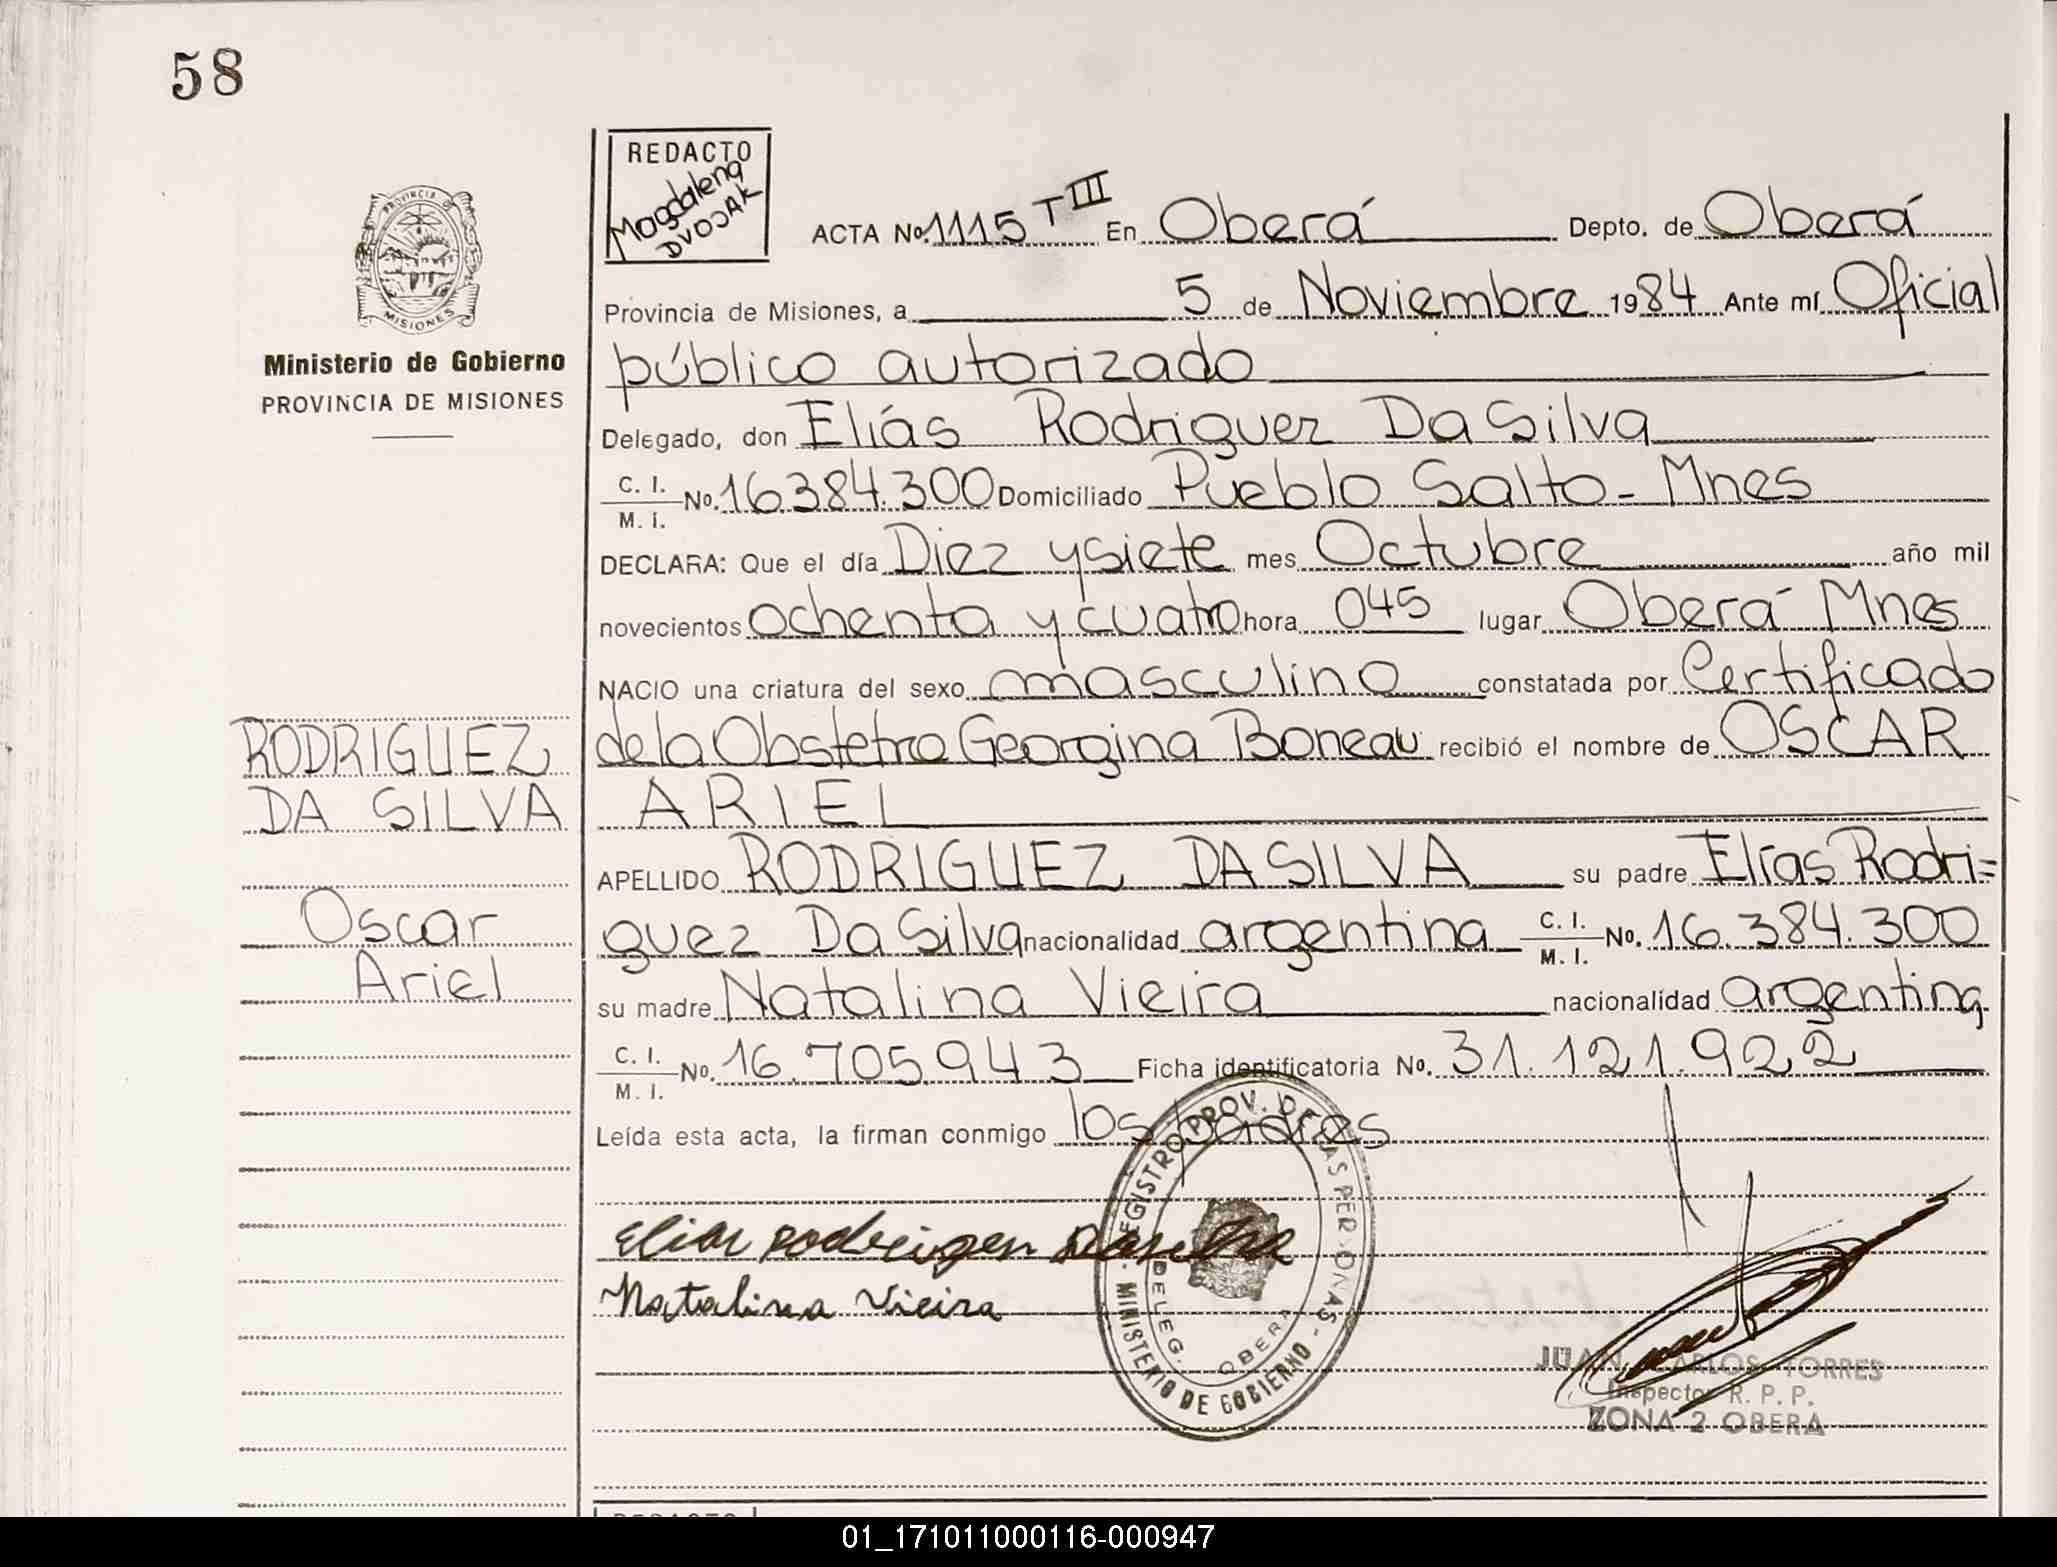 58
REDACTO
Magdalena
DVOJAK
ACTA No. 1115 T III En Oberá Depto. de Oberá
Provincia de Misiones, a 5 de Noviembre 1984 Ante mí Oficial
público autorizado
Delegado, don Elías Rodriguez Da Silva
C. I. M. I. No. 16.384.300 Domiciliado Pueblo Salto - Mnes
DECLARA: Que el día Diez y siete mes Octubre año mil
novecientos ochenta y cuatro hora 045 lugar Oberá Mnes
NACIO una criatura del sexo masculino constatada por Certificado
de la Obstetra Georgina Boneau recibió el nombre de OSCAR
ARIEL
APELLIDO RODRIGUEZ DA SILVA su padre Elías Rodri=
guez Da Silva nacionalidad argentina C. I. M. I. No. 16.384.300
su madre Natalina Vieira nacionalidad argentina
C. I. M. I. No. 16.705.943 Ficha identificatoria No. 31.121.922
Leída esta acta, la firman conmigo los padres
Elias Rodriguez Da Silva
Natalina Vieira
REGISTRO PROV. DE LAS PERSONAS - MINISTERIO DE GOBIERNO -
DELEG. OBERA
JUAN CARLOS TORRES
Inspector R. P. P.
ZONA 2 OBERA
PROVINCIA DE
MISIONES
Ministerio de Gobierno
PROVINCIA DE MISIONES
RODRIGUEZ
DA SILVA
Oscar
Ariel
01_171011000116-000947